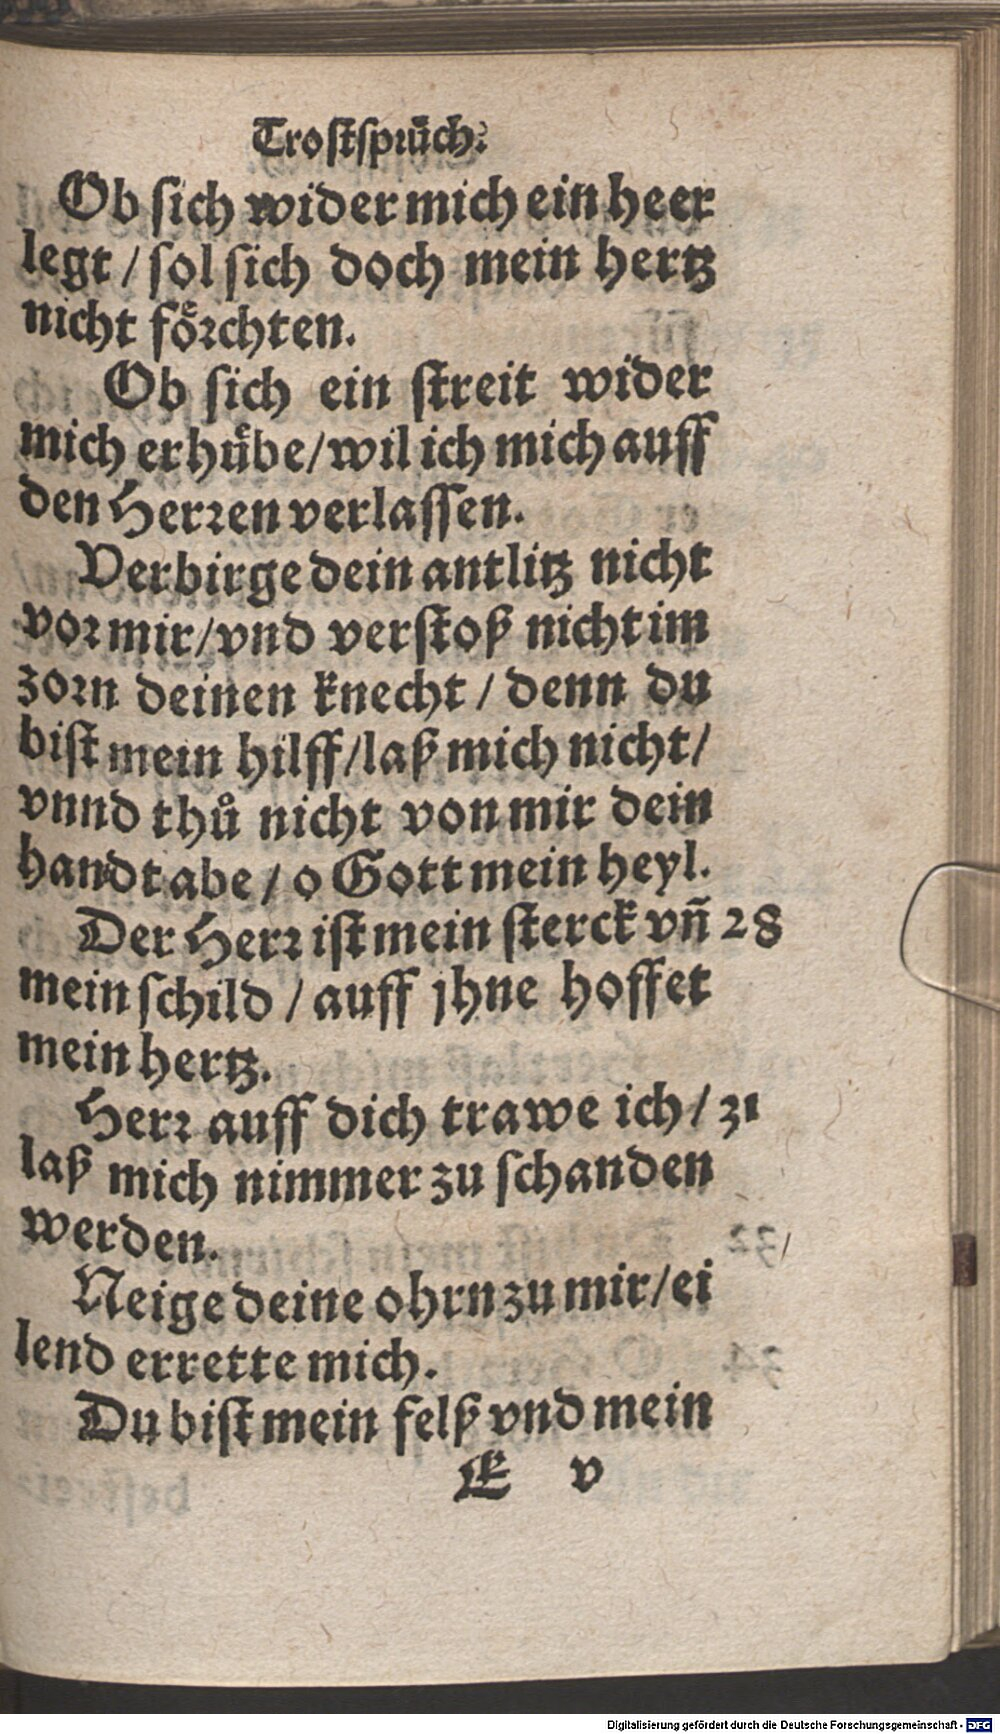 Troſtſprüch.
Ob ſich wider mich ein heer
legt / ſol ſich doch mein hertz
nicht foͤrchten.
Ob ſich ein ſtreit wider
mich erhuͤbe/wil ich mich auff
den Herren verlaſſen.
Verbirge dein antlitz nicht
vor mir/vnd verſtoß nicht im
zorn deinen knecht / denn du
biſt mein hilff/laß mich nicht/
vnnd thuͦ nicht von mir dein
handt abe / o Gott mein heyl.
Der Herr iſt mein ſterck vñ 28
mein ſchild / auff jhne hoffet
mein hertz.
Herr auff dich trawe ich / 31
laß mich nimmer zu ſchanden
werden.
Neige deine ohrn zu mir/ei
lend errette mich.
Du biſt mein felß vnd mein
E v
Digitalisierung gefördert durch die Deutsche Forschungsgemeinschaft - DFG